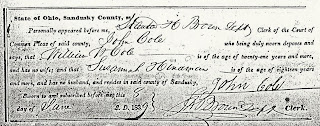 State of Ohio, Sandusky County, ss.
Personally appeared before me, Homer H Brown Dept Clerk of the Court of
Common Pleas of said county, John Cole who being duly sworn deposes and
says, that William W Cole is of the age of twenty-one years and more,
and has no wife; and that Susannah Hineman is of the age of eighteen years
and more, and has no husband, and resides in said county of Sandusky. John Cole
Sworn to and subscribed before this
day of June A. D. 1859 H Brown Dept Clerk.